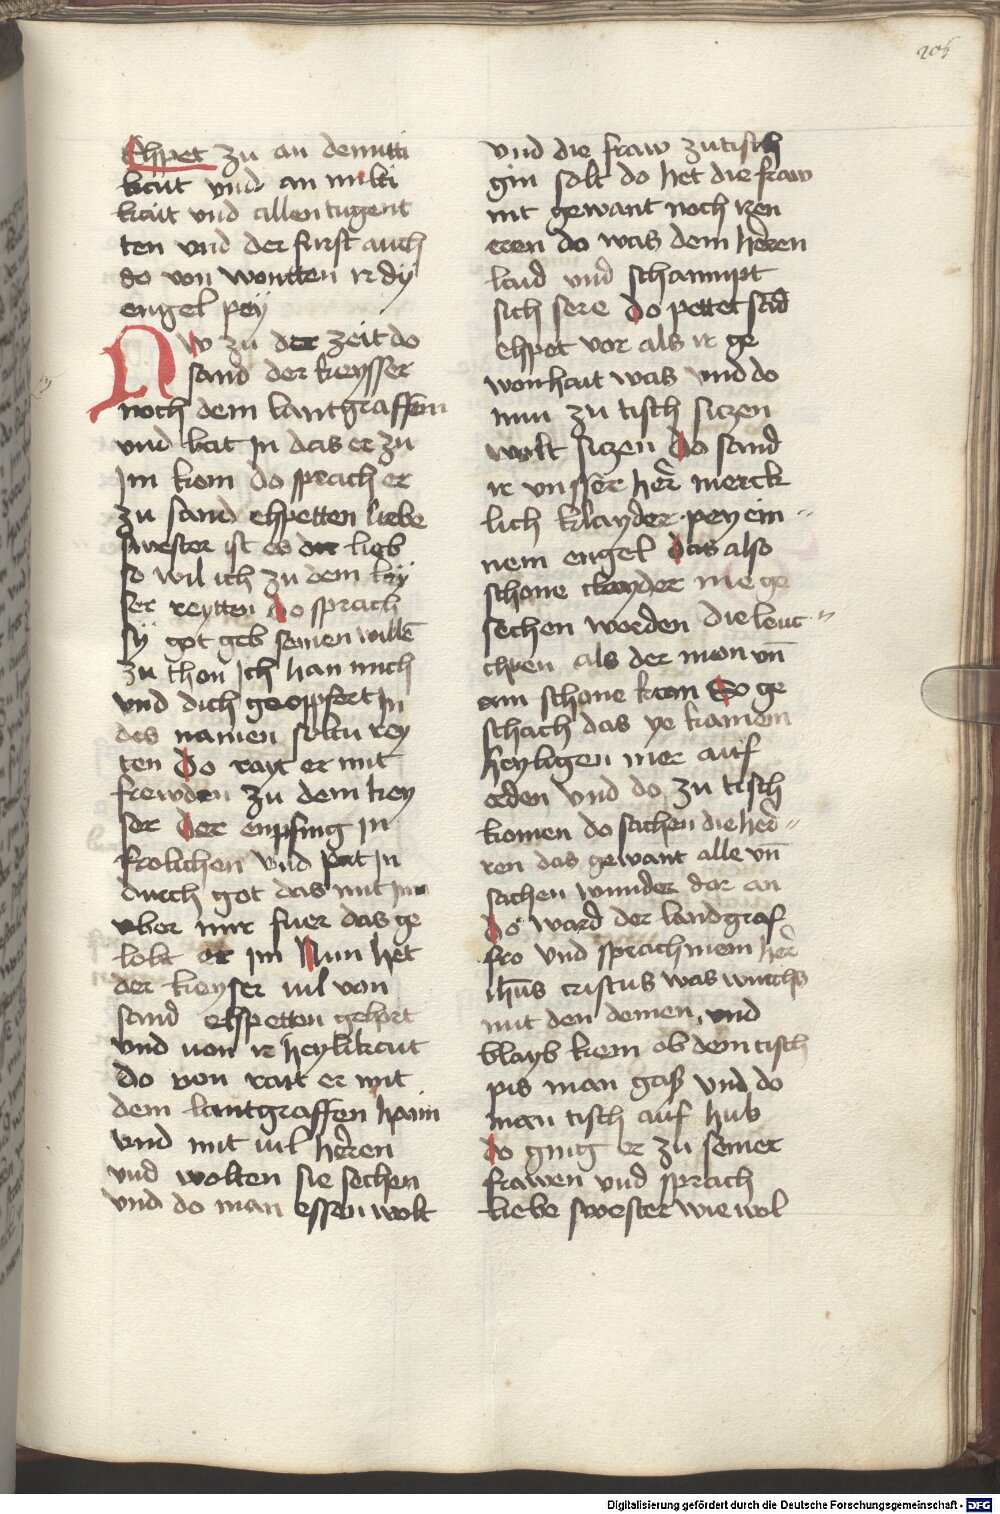 205
Ehpet zu an demutti
kait vnd an milti
kait vnd allen tugent
ten vnd der furst auch
do von wontten ir dÿ
engel peÿ
Nw zu der zeit do
sand der keysser
noch dem lantgraffen
vnd bat in das er zu
im kom do sprach er
zu sand ehpetten liebe
swester ist es dir lieb
so wil ich zu dem kaÿ
ser reytten do sprach
sÿ got geb seinen willē
zu thon Ich han mich
vnd dich geopffert in
des namen soltu rey
ten Do rayt er mit
frewden zu dem key
ser der enpfing in
frolichen vnd pat in
durch got das mit im
vber mer fuer das ge
lobt er im Nun het
der keyser uil von
sand ehspetten gehort
vnd uon ir heylikait
do von rait er mit
dem lantgraffen haim
vnd mit uil heren
vnd wolten sie sechen
vnd do man essen wolt
vnd die fraw zu tisch
gin solt do het die fraw
nit gewant noch iren
eren do was dem heren
laid vnd schammpt
sich sere do pettet sād
ehpet vor als ir ge
wonhait was vnd do
nun zu tisch siczen
wolt siczen do sand
ir vnsser her merck
lich klayder pey ein
nem engel das also
schone clayder nie ge
sechen worden die leuc
chten als der mon vn̄
ain schone kron So ge
schach das ye kamem
heyligen mer auff
erden vnd do zu tisch
komen do sachen die her
ren das gewant alle vn̄
sachen wunder dar an
do ward der landgraf
fro vnd sprach mein her
ihūs cristus was wurchs
mit den deinen vnd
blayb kem ob dem tisch
pis man gaß vnd do
man tisch auf hub
do ging er zu seiner
frawen vnd sprach
liebe swester wie wol
Digitalisierung gefördert durch die Deutsche Forschungsgemeinschaft - DFG